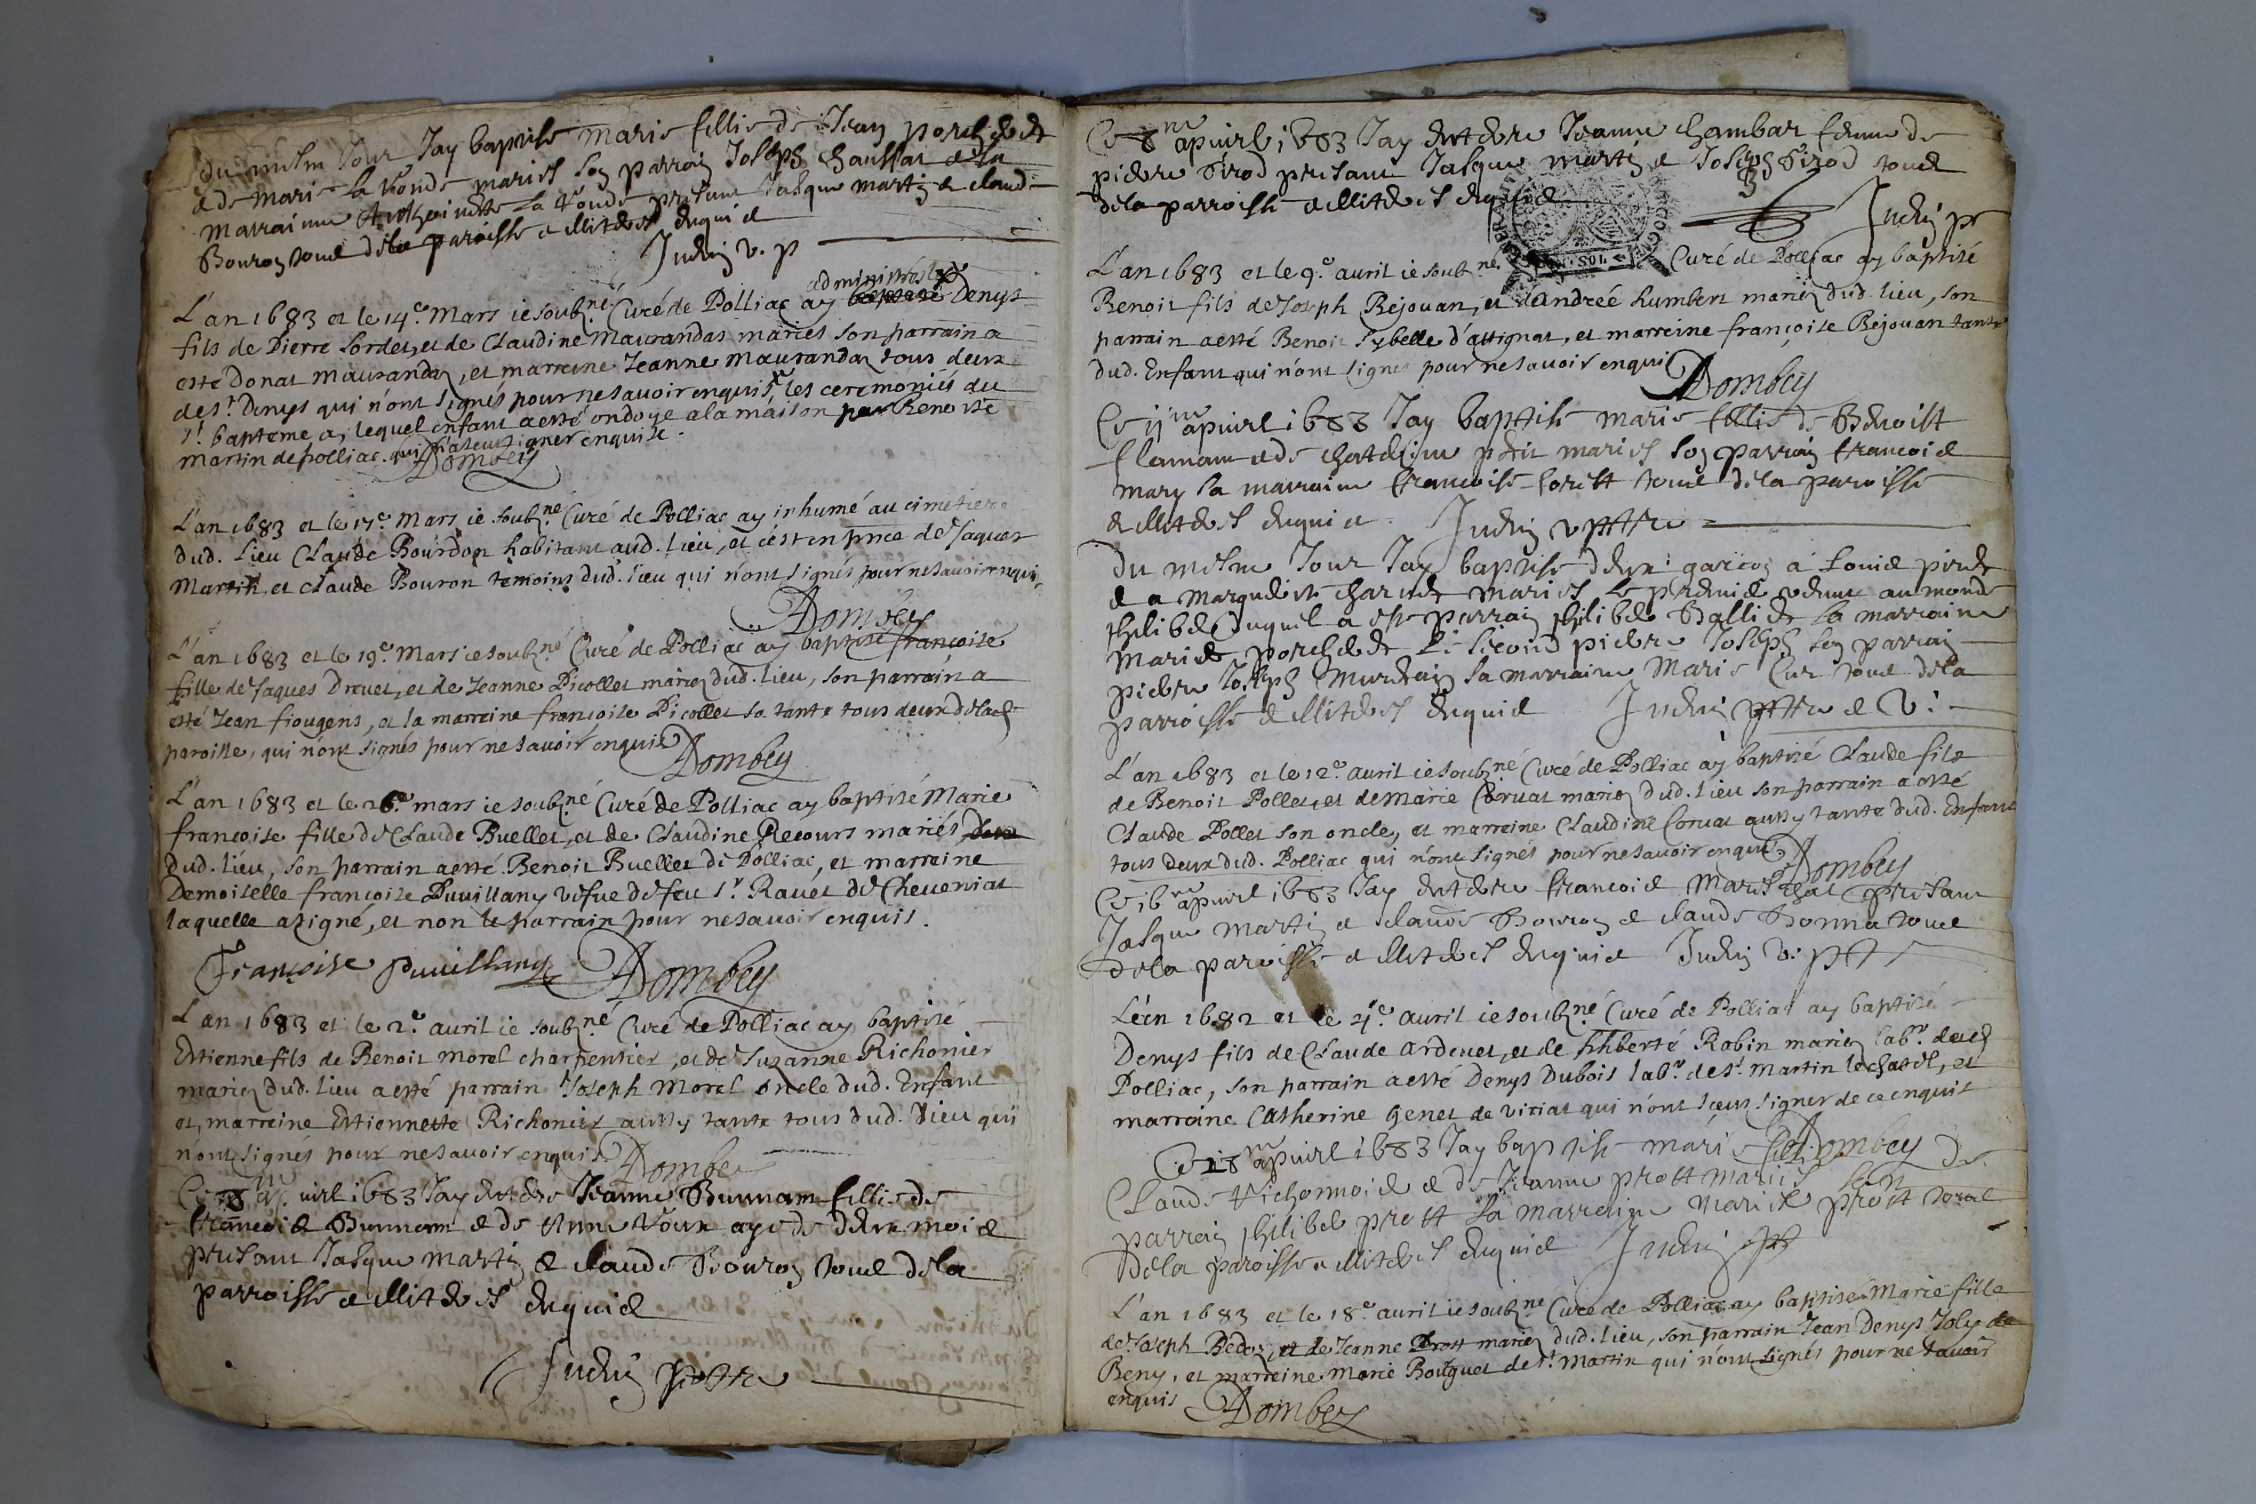 du mesm Jour Jay baptise marie fillie de Jean porchedet
e de marie la vonde mariés son parrain Joseph chaussat e sa
marraine Anthoinette la vonde presant Jasque martin e claude
Bouron tous dela paroisse e illiterés enquis
Judin v. p
administré les
L'an 1683 et le 14.e Mars ie soubz.né Curé de Polliac ay baptisé Denys
fils de Pierre Sordet, et de Claudine Maurandas mariés son parrain a
esté Donat Maurandaz, et marreine Jeanne Maurandaz tous deux
de s.t Denys qui n'ont signés pour ne savoir enquis, les ceremonies du
s.t bapteme a, lequel enfant a esté ondoyé a la maison par Benoiste
Martin de polliac. qui n'a sceu signer enquise.
Dombey
L'an 1683 et le 17.e Mars ie soubz.né Curé de Polliac ay inhumé au cimetiere
dud. Lieu Claude Bourdon habitant aud. lieu, et c'est en pnce de Jaques
Martin, et Claude Bouron temoins dud. lieu qui n'ont signés pour ne savoir enquis
Dombey
L'an 1683 et le 19.e Mars ie soubz.né Curé de Polliac ay baptisé françoise
fille de Jaques Drevet, et de Jeanne Picollet mariez dud. lieu, son parrain a
esté Jean fiougens, et la marreine françoise Picollet sa tante tous deux de lad.
paroisse, qui n'ont signés pour ne savoir enquis
Dombey
L'an 1683 et le 26.e mars ie soubz.né Curé de Polliac ay baptisé Marie
françoise fille de Claude Buellet, et de Claudine Recours mariés,
dud. lieu, son parrain a esté Benoit Buellet de Polliac, et marreine
Demoiselle françoise Puvillany vefue de feu s.r Ravet de Cheveniat
laquelle a signé, et non le parrain pour ne savoir enquis.
Françoise puuillany Dombey
L'an 1683 et le 2.e avril ie soubz.né Curé de Polliac ay baptisé
Estienne fils de Benoit Morel charpentier, et de Suzanne Richonier
mariez dud. lieu a esté parrain Joseph Morel oncle dud. Enfant
et, marreine Estiennette Richonier aussy tante tous dud. lieu qui
n'ont signés pour ne savoir enquis
Dombey
Ce 8 apuirl 1683 Jay enterre Jeanne Bunnam fillie de
francois Bunnam e de Anne Voux aye de deux mois
presant Jasque martin e claude Bouron tous dela
parroisse e illiterés enquis
Judin pttre
Ce 8me apuirl 1683 Jay enterre Jeanne Chambar femme de
pierre Pirod presant Jasque martin e Joseph Pirod tous
dela parroisse e illiterés enquis
Judin pr
L'an 1683 et le 9.e avril ie soubz.né Curé de Polliac ay baptisé
Benoit fils de Joseph Rejouan, et d'andreé humbert mariez dud. lieu, son
parrain a esté Benoit Sybelle d'attignat, et marreine françoise Rejouan tante
dud. Enfant qui n'ont signés pour ne savoir enquis
Dombey
Ce 11me apuirl 1683 Jay baptise marie fillie de Benoist
flamant e de chateline petit mariés son parrain francois
mary sa marraine francoise forest tous dela paroisse
e illiterés enquis. Judin v pttre
Du mesme Jour Jay baptise deux garcon a Louis piret
e a marguerite charvet mariés le premie venue au monde
philibe duquel a este parrain philibe Ballide la marraine
marie porchedet le second pierre Joseph son parrain
pierre Joseph Mureain sa marraine Marie Cur tous dela
parroisse e illiterés enquis Judin pttre e v.
L'an 1683 et le 12.e avril ie soubz.né Curé de Polliac ay baptisé Claude fils
de Benoit Pollet, et de marie Corvat mariez dud. lieu son parrain a esté
Claude Pollet son oncle, et marreine Claudine Corvat aussy tante dud. Enfant
tous deux dud. Polliac qui n'ont signés pour ne savoir enquis
Dombey
Ce 16me apuirl 1683 Jay enterre francois Mareschat presant
Jasque martin e claude Bouron e claude Bonna tous
dela paroisse e illiterés enquis Judin v. ptt
L'an 1682 et le 21.e avril ie soubz.né Curé de Polliat ay baptisé
Denys fils de Claude ardevet, et de philberte Robin mariez lab.r dud.
Polliac, son parrain a esté Denys Dubois lab.r de s.t Martin le chatel, et
marreine Catherine genet de viriat qui n'ont sceus signer de ce enquis
Dombey
Ce 18me apuirl 1683 Jay baptise marie fillie de
Claude Vichonnois e de Jeanne prost mariés son
parrain philibe prost sa marraine marie prost tous
dela paroisse e illiterés enquis Judin ptt
L'an 1683 et le 18.e avril ie soubz.né Curé de Polliac ay baptisé Marie fille
de Joseph Bedoz, et de Jeanne Prost mariez dud. lieu, son parrain Jean Denys Joly de
Beny, et marreine Marie Bouquet de s.t Martin qui n'ont signés pour ne savoir
enquis Dombey